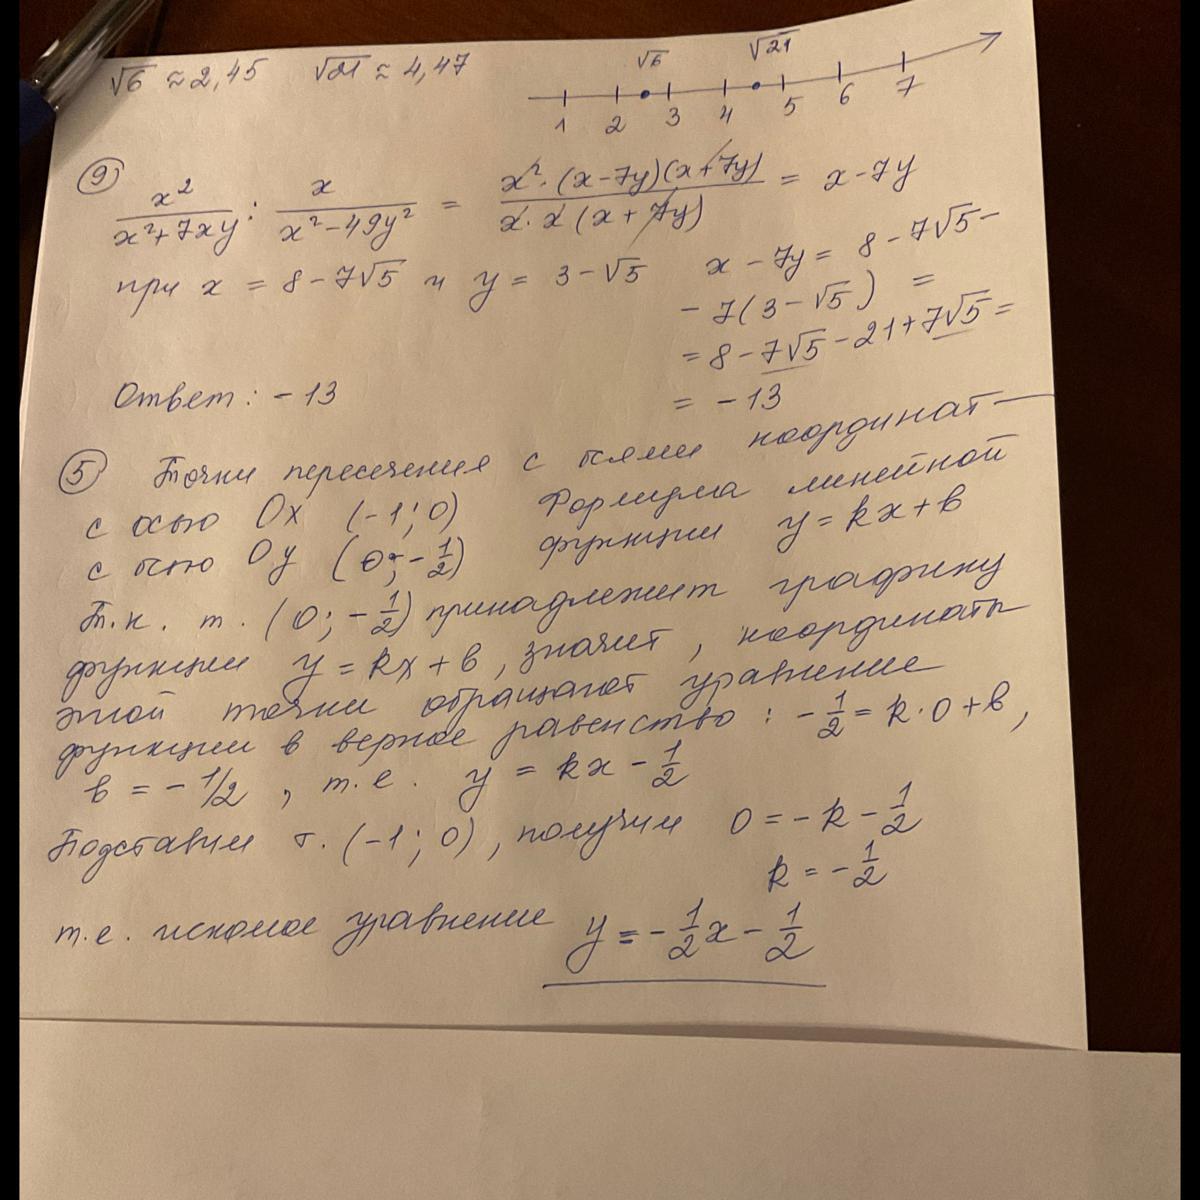 √6 ≈ 2,45 √21 ≈ 4,47
√6 √21
1 2 3 4 5 6 7
9) x²/(x²+7xy) : x/(x²-49y²) = x²·(x-7y)(x+7y)/(x·x(x+7y)) = x-7y
при x = 8-7√5 и y = 3-√5 x-7y = 8-7√5-
-7(3-√5) =
= 8-7√5-21+7√5 =
Ответ: -13 = -13
5) Точки пересечения с осями координат-
с осью Ox (-1; 0) Формула линейной
с осью Oy (0; -1/2) функции y=kx+b
Т.к. т. (0; -1/2) принадлежит графику
функции y=kx+b, значит, координаты
этой точки обращают уравнение
функции в верное равенство: -1/2 = k·0+b,
b = -1/2, т.е. y = kx - 1/2
Подставим т. (-1; 0), получим 0 = -k - 1/2
k = -1/2
т.е. искомое уравнение y = -1/2x - 1/2